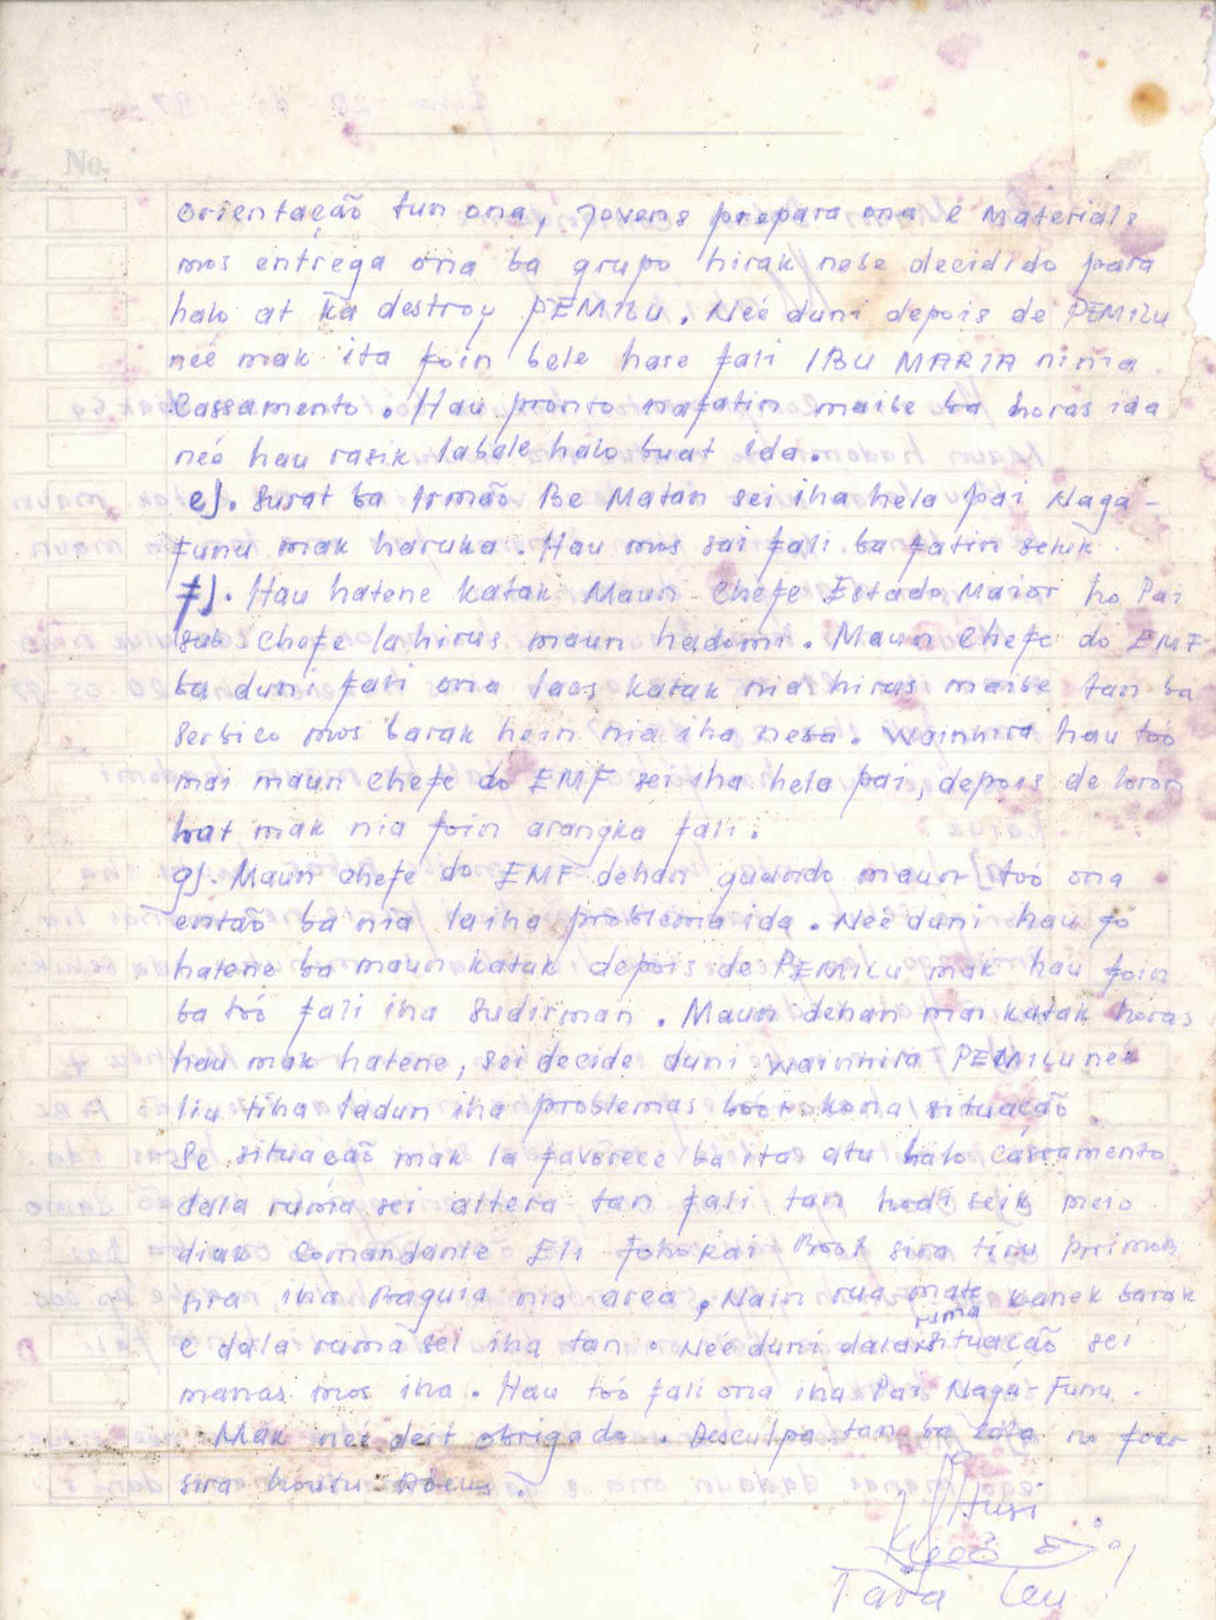 No.
orientação tun ona, Jovens prepara ona e Materials
mos entrega ona ba grupo hirak nebe decidido para
halo at ka destroy PEMILU. Neé duni depois de PEMILU
neé mak ita foin bele hare fali IBU MARIA ninia
Cassamento. Hau pronto nafatin maibe ba horas ida
neé hau rasik labele halo buat ida.
e). Surat ba Irmão Be Matan sei iha hela pai Naga-
funu mak haruka. Hau mos sai fali ba fatin seluk.
f). Hau hatene katak Maun Chefe Estado Maior ho Pai
sub Chefe la hirus maun hadomi. Maun Chefe do EMF
ba duni fali ona laos katak nia hirus maibe tan ba
Serbico mos barak hein nia iha neba. Wainhira hau toó
mai maun Chefe do EMF sei iha hela pai, depois de loron
hat mak nia foin arangka fali.
g). Maun Chefe do EMF dehan quando maun toó ona
então ba nia laiha problema ida. Neé duni hau fó
hatene ba maun katak depois de PEMILU mak hau foin
ba toó fali iha Sudirman. Maun dehan mai katak horas
hau mak hatene, sei decide duni wainhira PEMILU neé
liu tiha ladun iha problemas boot kona situação.
Se situação mak la favorece ba ita atu halo Cassamento
dala ruma sei altera tan fali tan hodi seik meio
diak Comandante Eli Foho Rai Boot sira tiru primos
sira iha Baguia nia area, Nain rua mate kanek barak
e dala ruma sei iha tan. Neé duni dala ruma situação sei
manas mos iha. Hau toó fali ona iha Pai Naga-Funu.
Mak neé deit obrigado. Desculpa tan ba no foer
sira hotu Adeus.
Husi
Tara Leu